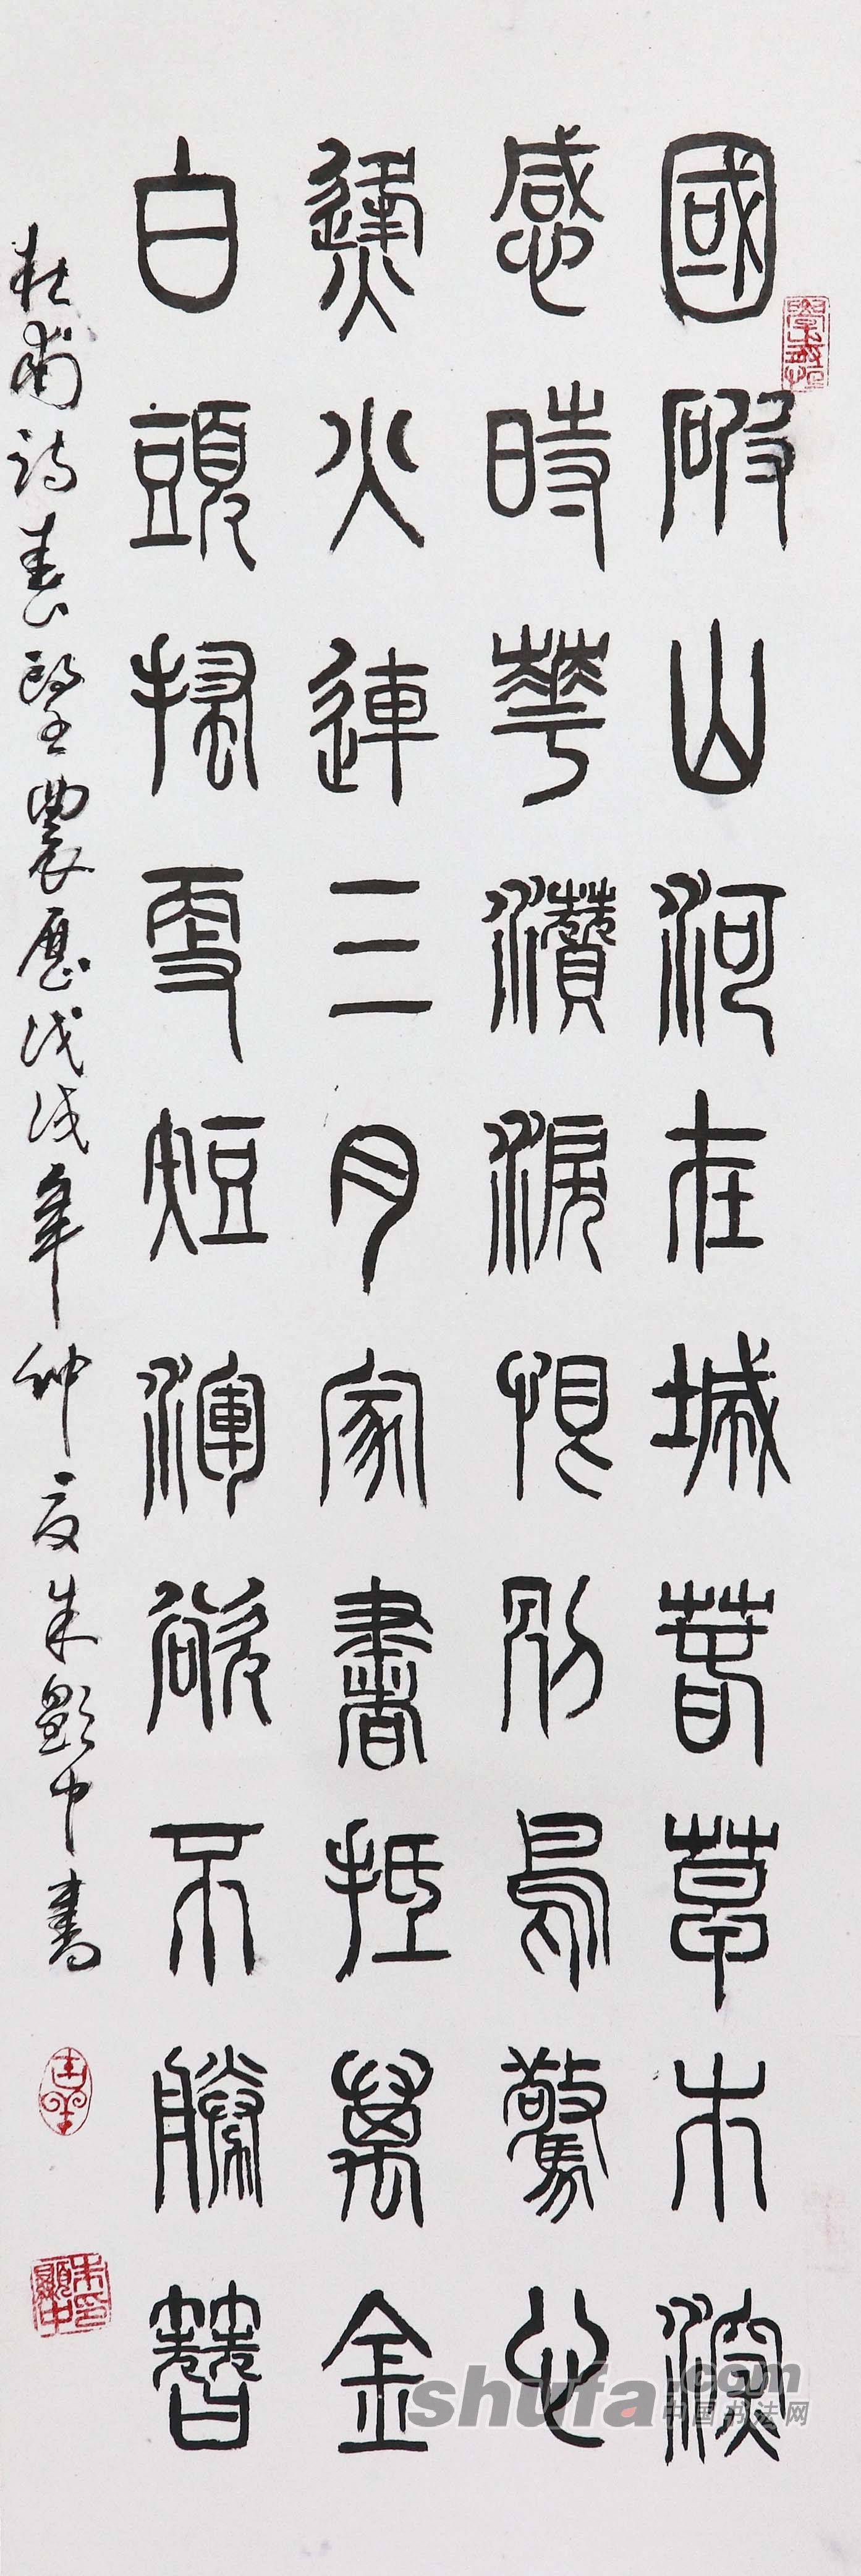 國破山河在城春草木深
感時華灒淚恨別鳥驚心
烽火連三月家書抵萬金
白頭搔更短渾欲不勝簪
杜甫詩春望農歷戊戌年仲夏朱顯中書
朱顯中印
shufa.com
中国书法网